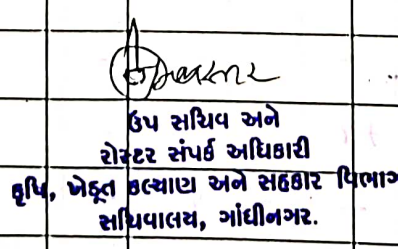 ઉપ સચિવ અને
રોસ્ટર સંપર્ક અધિકારી
કૃષિ, ખેડૂત કલ્યાણ અને સહકાર વિભાગ
સચિવાલય, ગાંધીનગર.